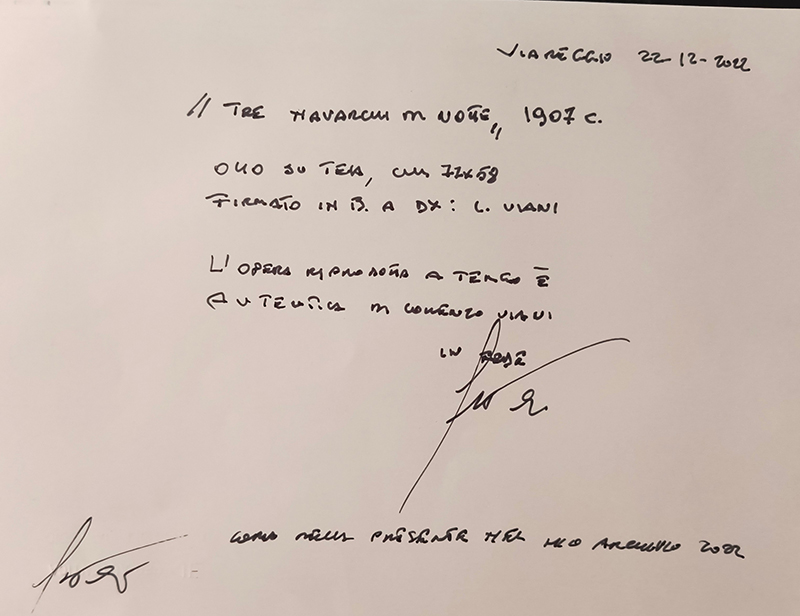 VIAREGGIO 22-12-2022
"TRE NAVARCHI DI NOTTE", 1907 C.
OLIO SU TELA, CM 72X58
FIRMATO IN B. A DX: L. VIANI
L'OPERA RIPRODOTTA A TERGO È
AUTENTICA DI LORENZO VIANI
IN FEDE
COPIA DELLA PRESENTE NEL MIO ARCHIVIO 2022